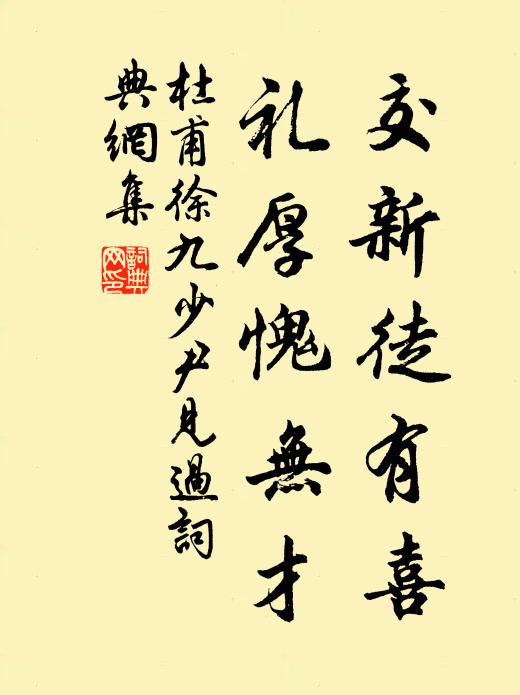 交新徒有喜
礼厚愧無才
杜甫徐九少尹見過詞
典網集
詞典网印